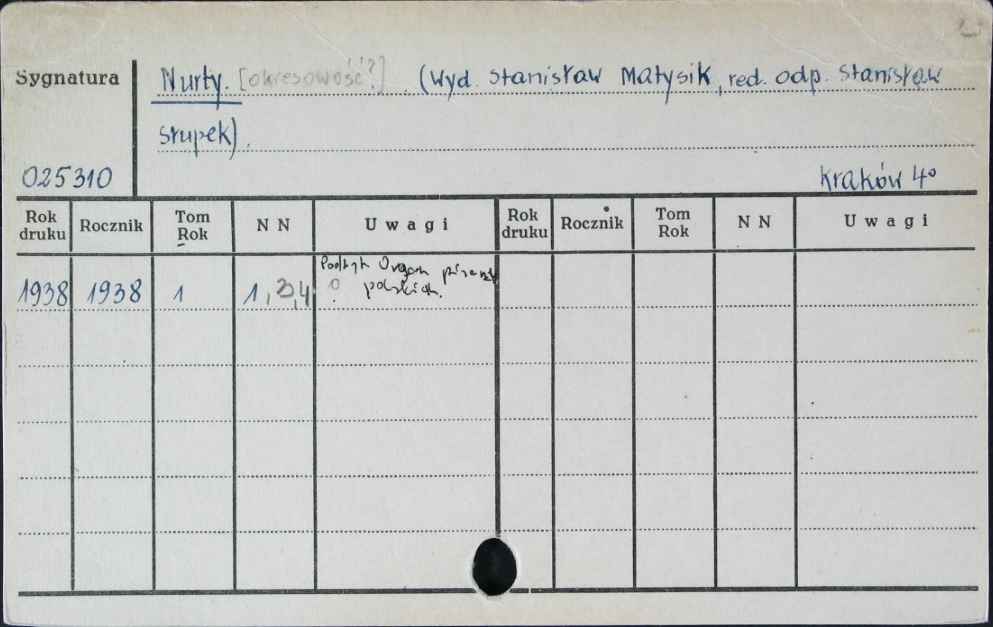 Sygnatura
Nurty. [okresowość?] (Wyd. Stanisław Matysik, red. odp. Stanisław
Słupek).
025310
Kraków 4°
Rok druku Rocznik Tom Rok N N Uwagi Rok druku Rocznik Tom Rok N N Uwagi
1938 1938 1 1, 3,4 Podtyt. Organ
polskich.